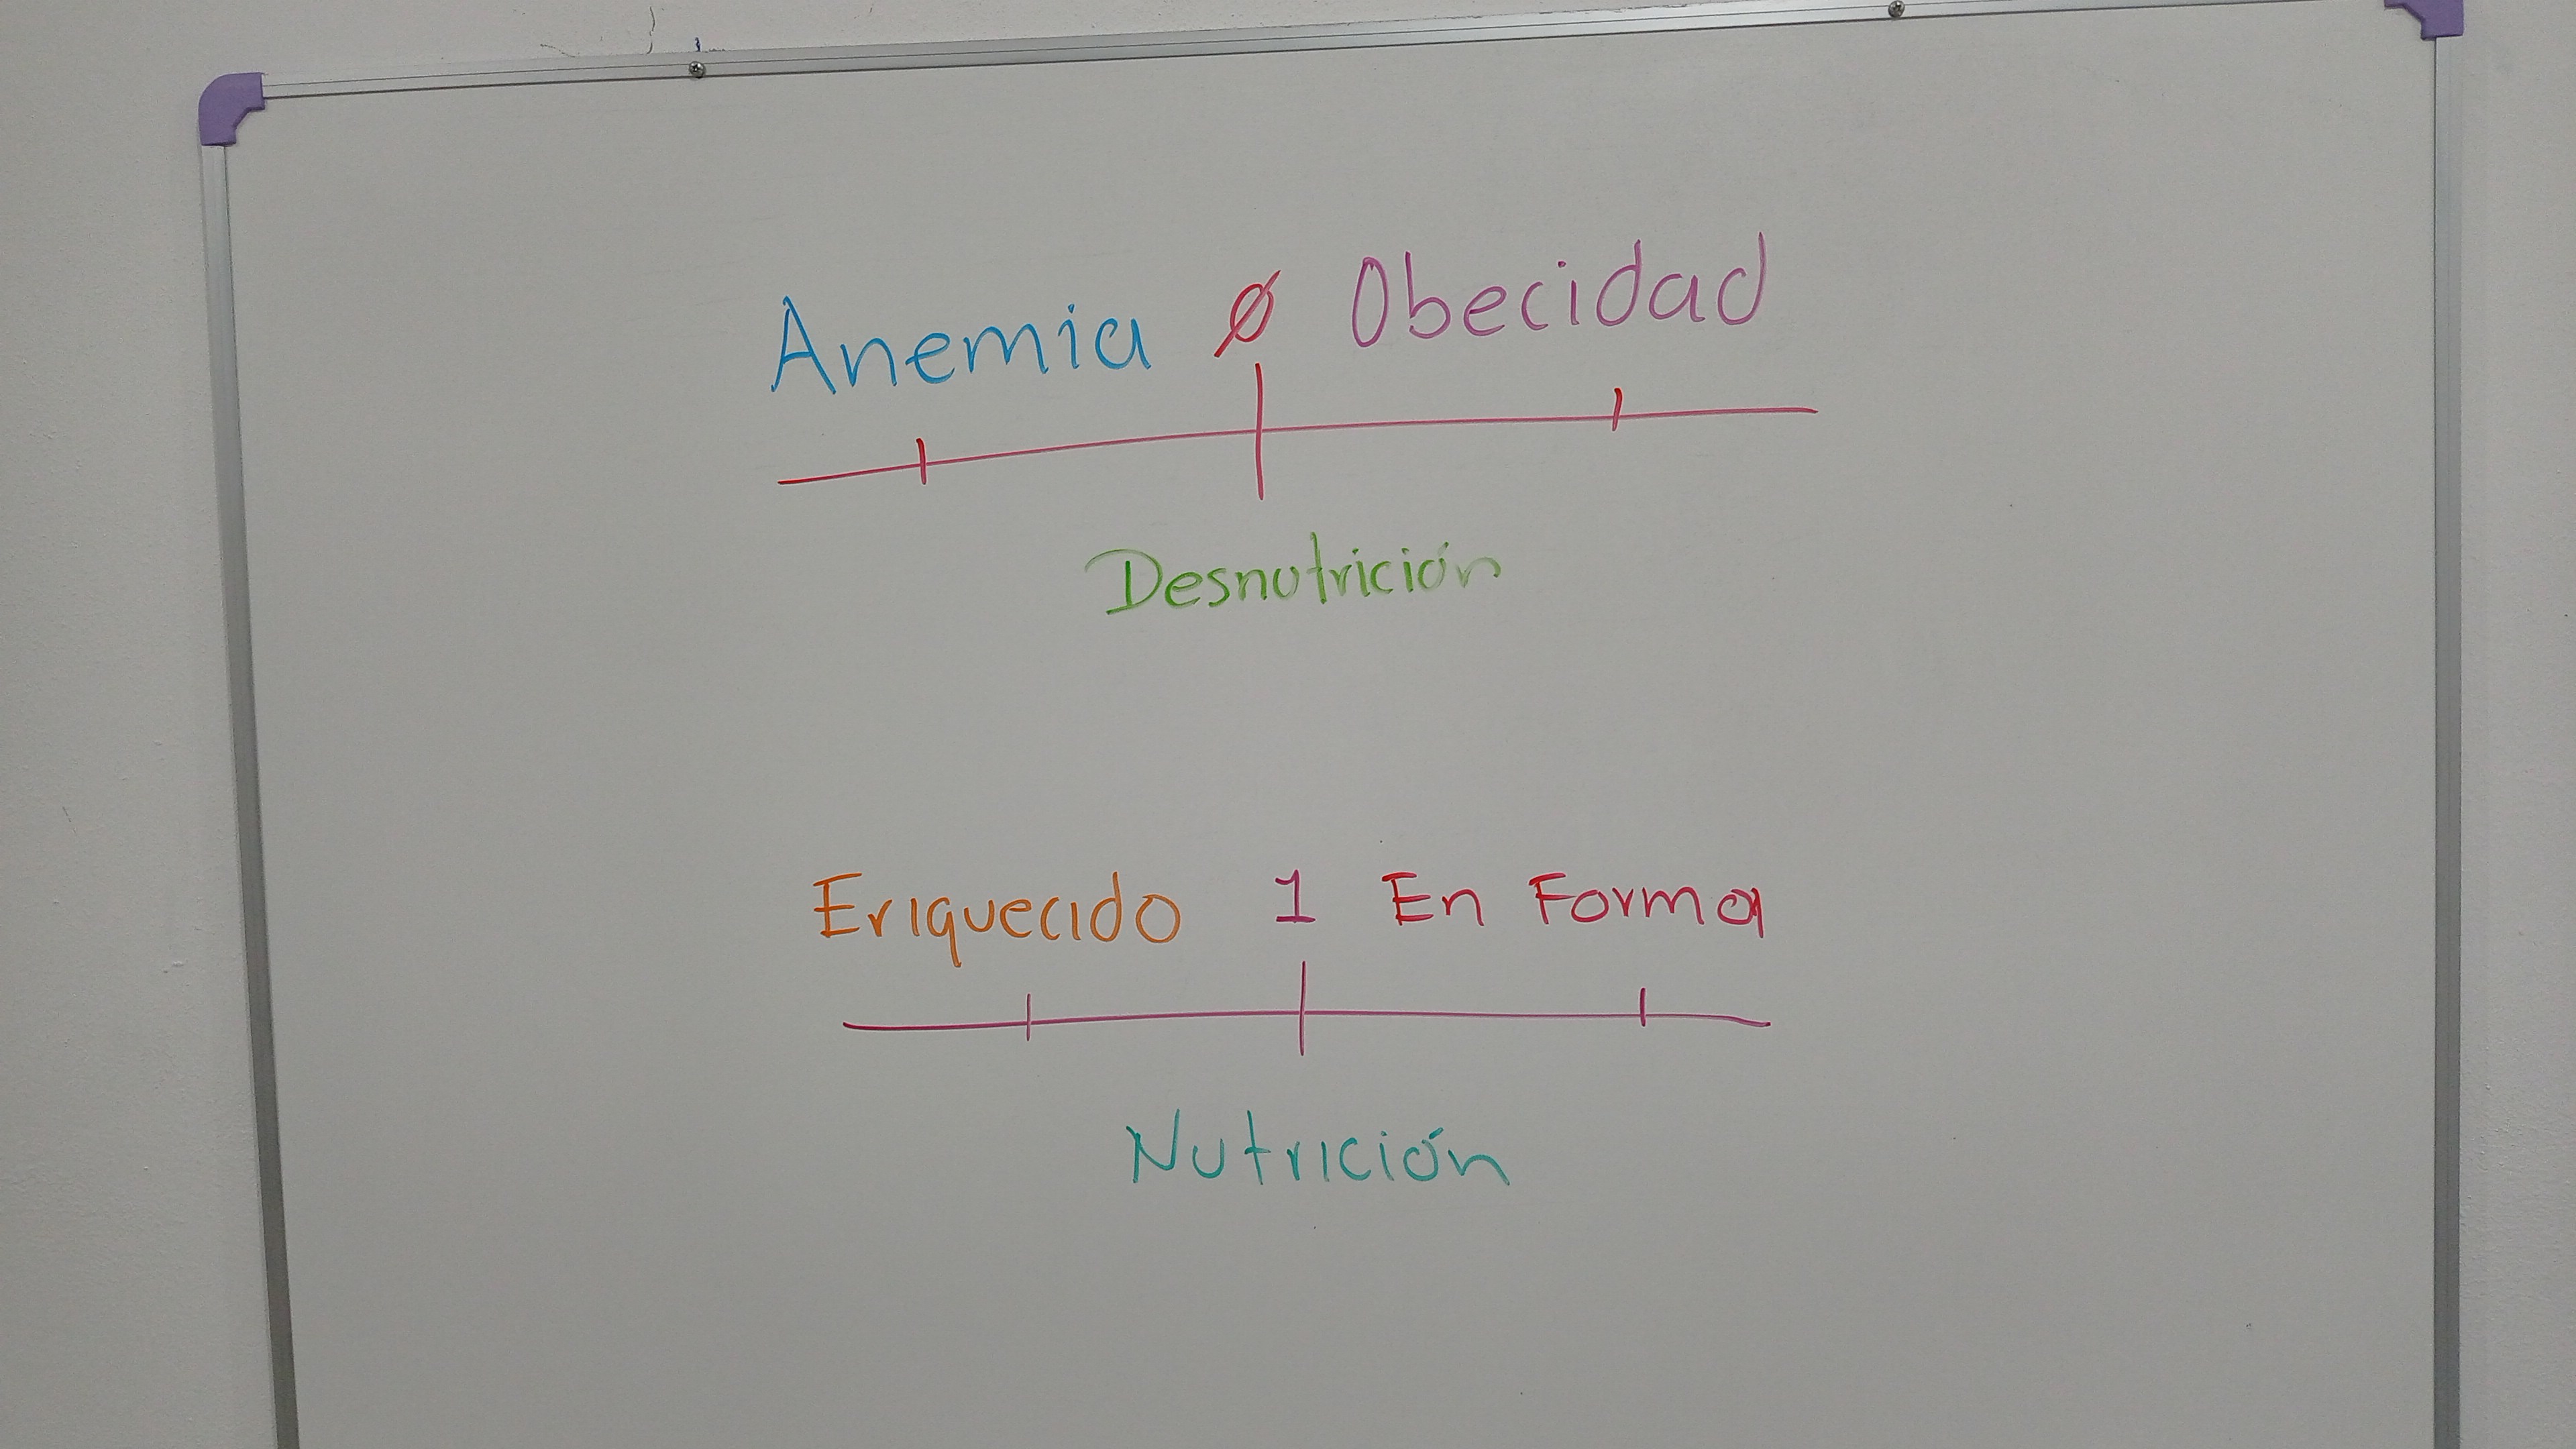 Anemia Ø Obecidad
Desnutrición
Eriquecido 1 En Forma
Nutrición